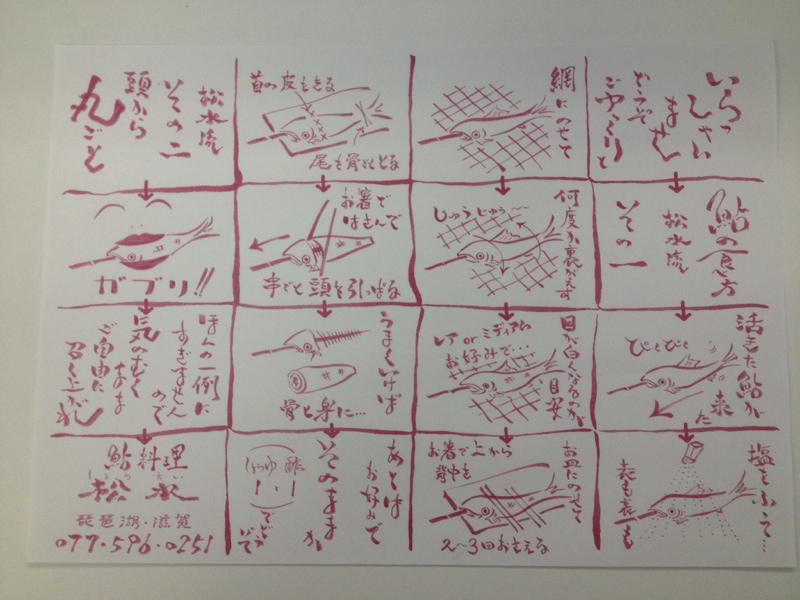 いらっ
しゃい
ませ
どうぞ
ごゆっくりと
鮎の食べ方
松水流
その一
活きた鮎が
来た
ぴくぴく
塩をふって…
表も裏も
網にのせて
何度か裏がえす
じゅうじゅう〜
目が白くなるのが
目安
レア or ミディアム
お好みで…
お皿にのせて
お箸で上から
背中を
2〜3回おさえる
首の皮をきる
尾も骨ごととる
お箸で
はさんで
串ごと頭を引っぱる
うまくいけば
あとは
お好みで
そのままか
しょうゆ
酢
でどうぞ
松水流
その二
頭から
丸ごと
ガブリ!!
ほんの一例に
すぎませんので
気のむくまま
ご自由に
召し上がれ
鮎料理
松水
琵琶湖・滋賀
077-596-0251